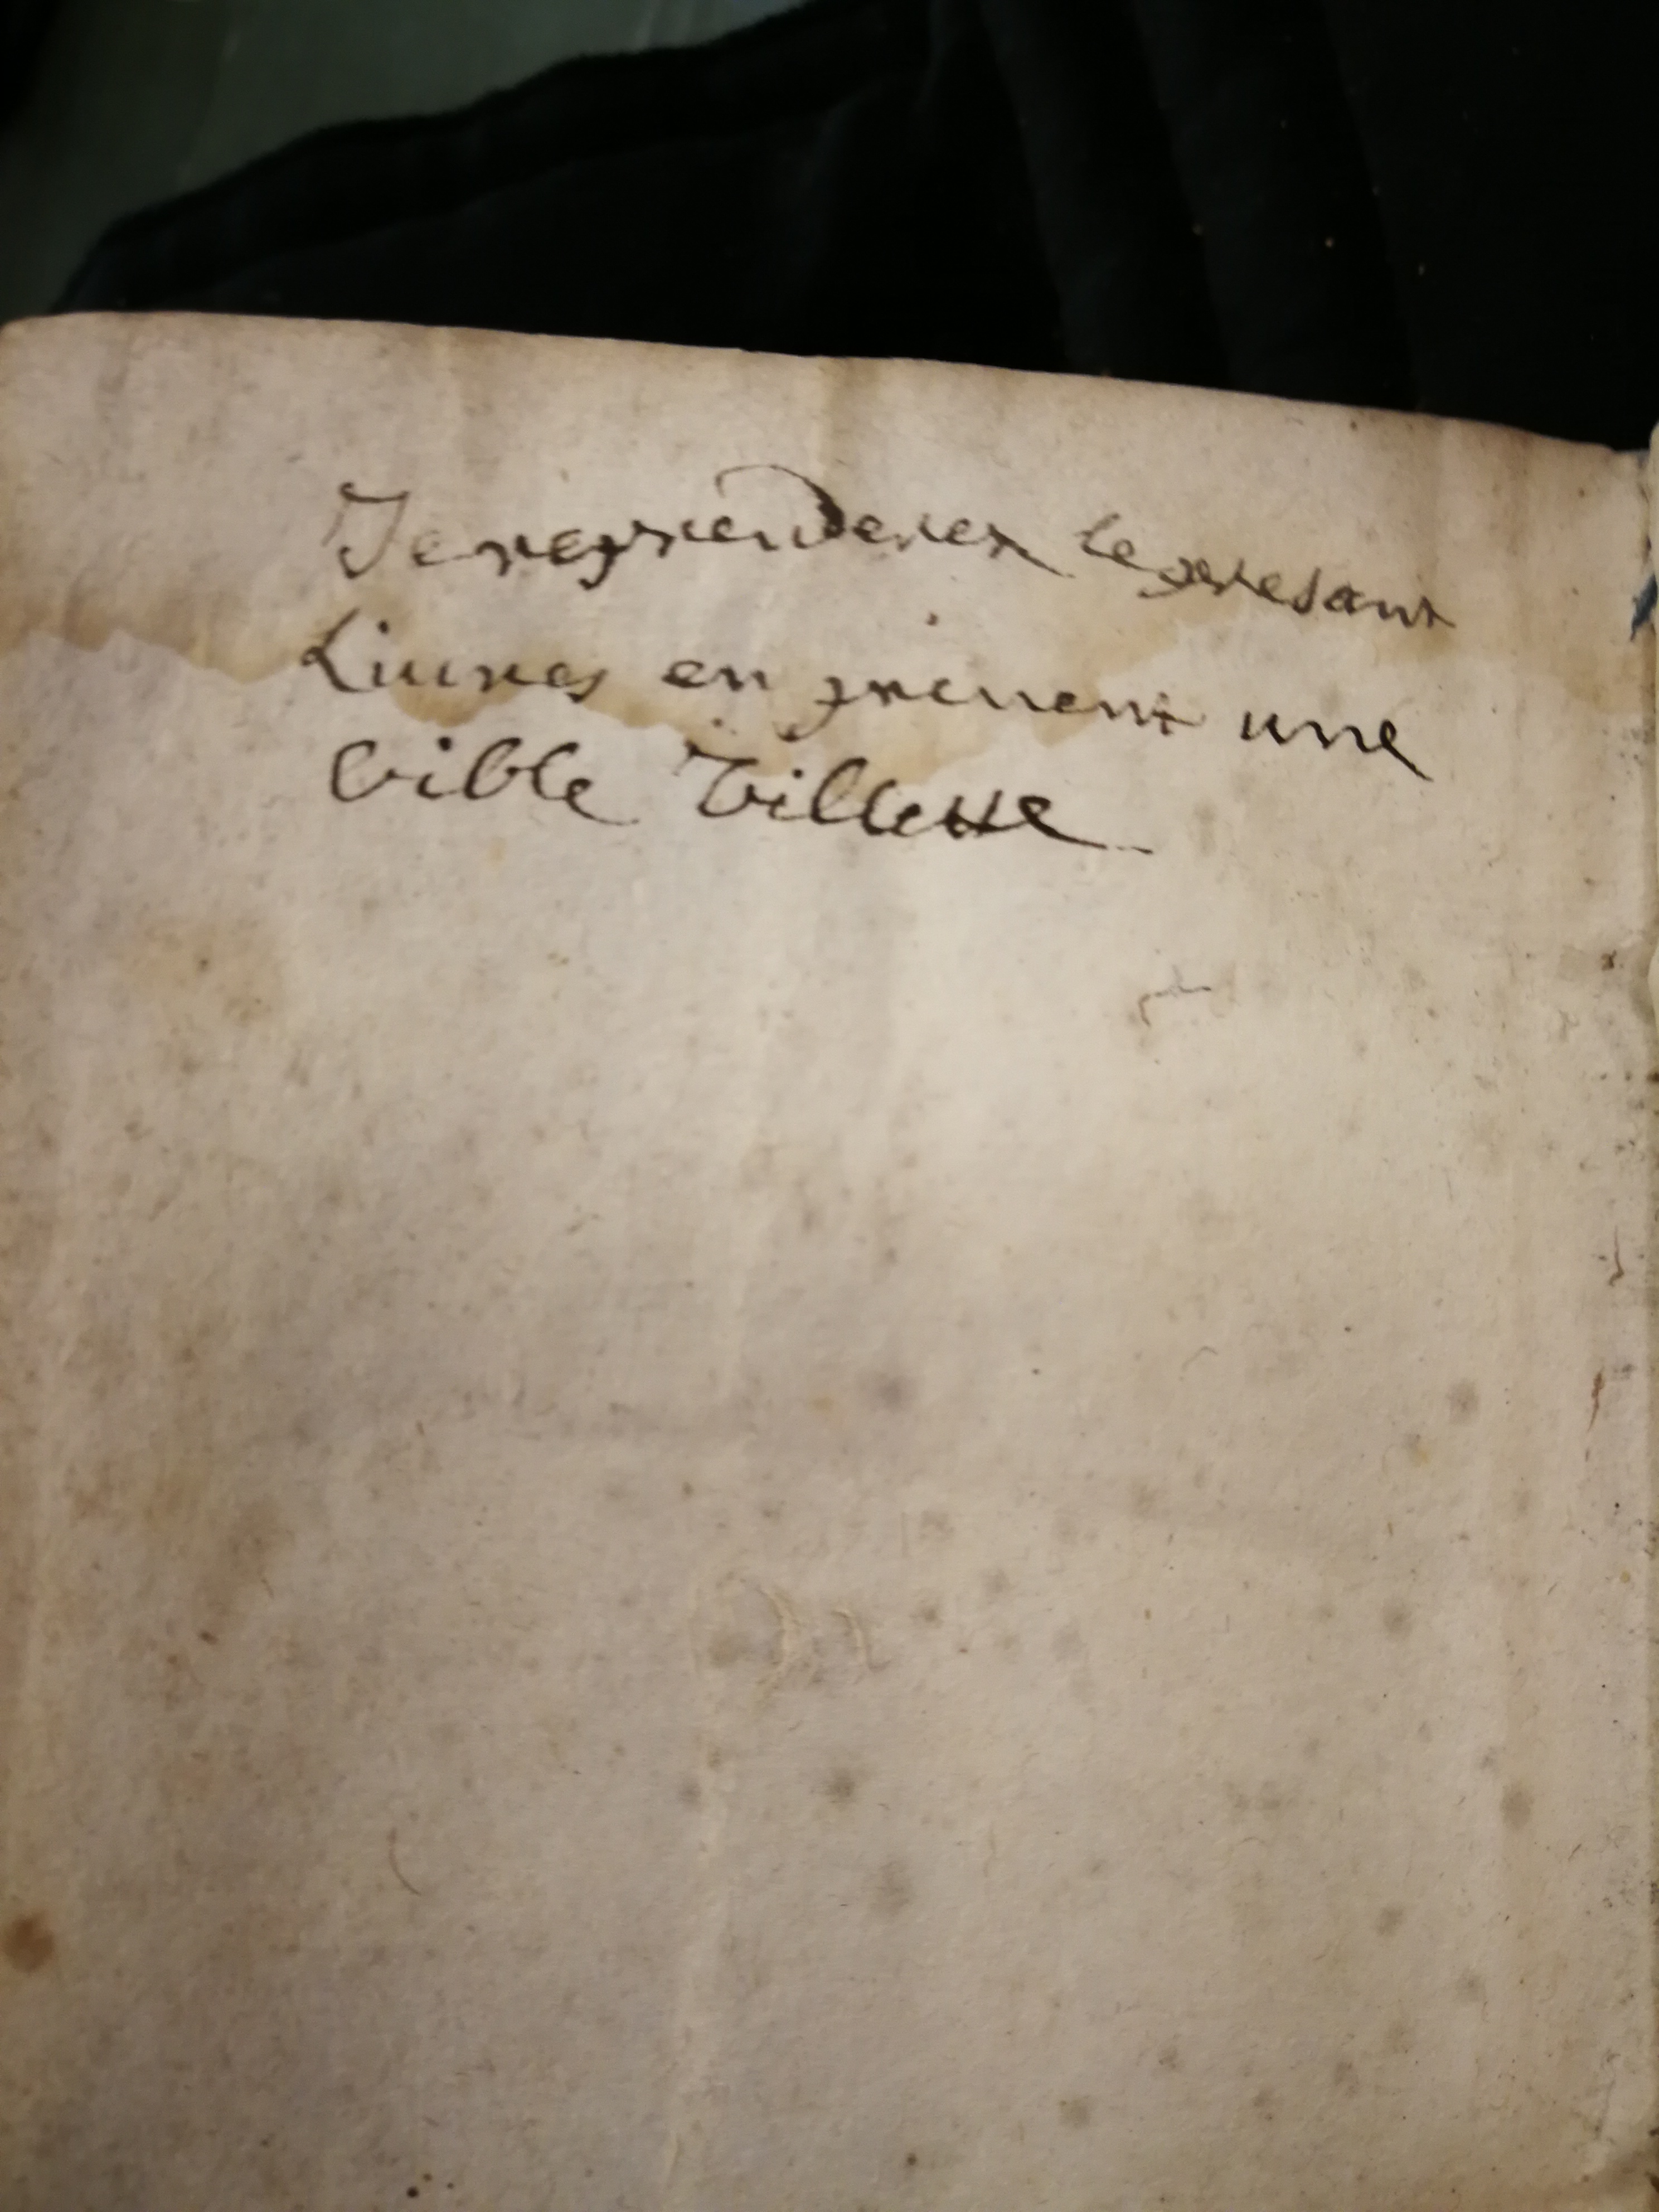 Je reprenderex le presant
Liures en prenent une
bible Villette